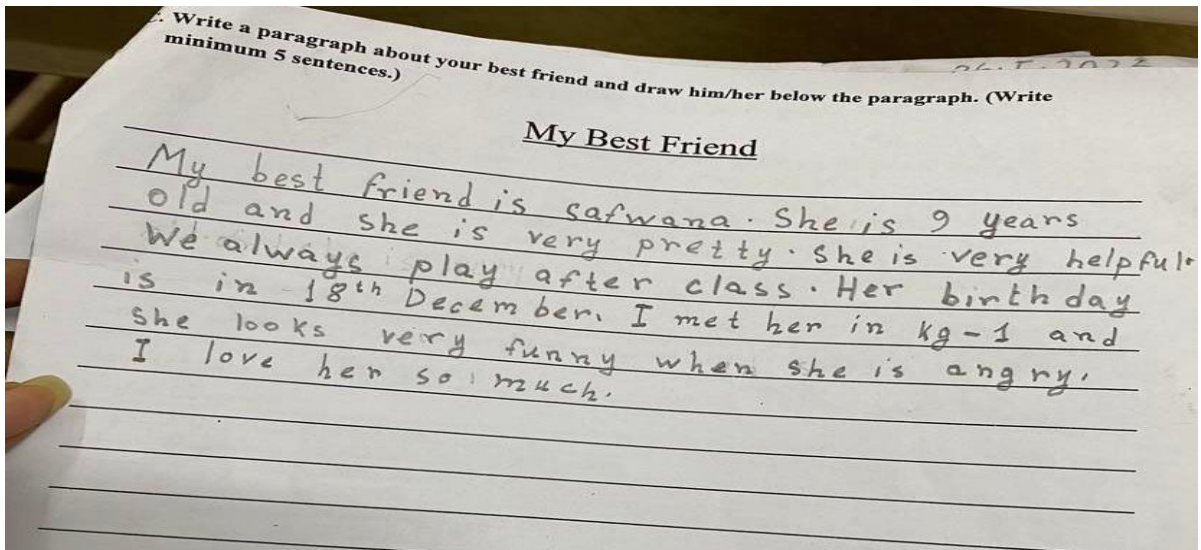 . Write a paragraph about your best friend and draw him/her below the paragraph. (Write
minimum 5 sentences.)
My Best Friend
My best friend is safwana. She is 9 years
old and she is very pretty. She is very helpful.
We always play after class. Her birthday
is in 18th December. I met her in kg-1 and
She looks very funny when she is angry.
I love her so much.